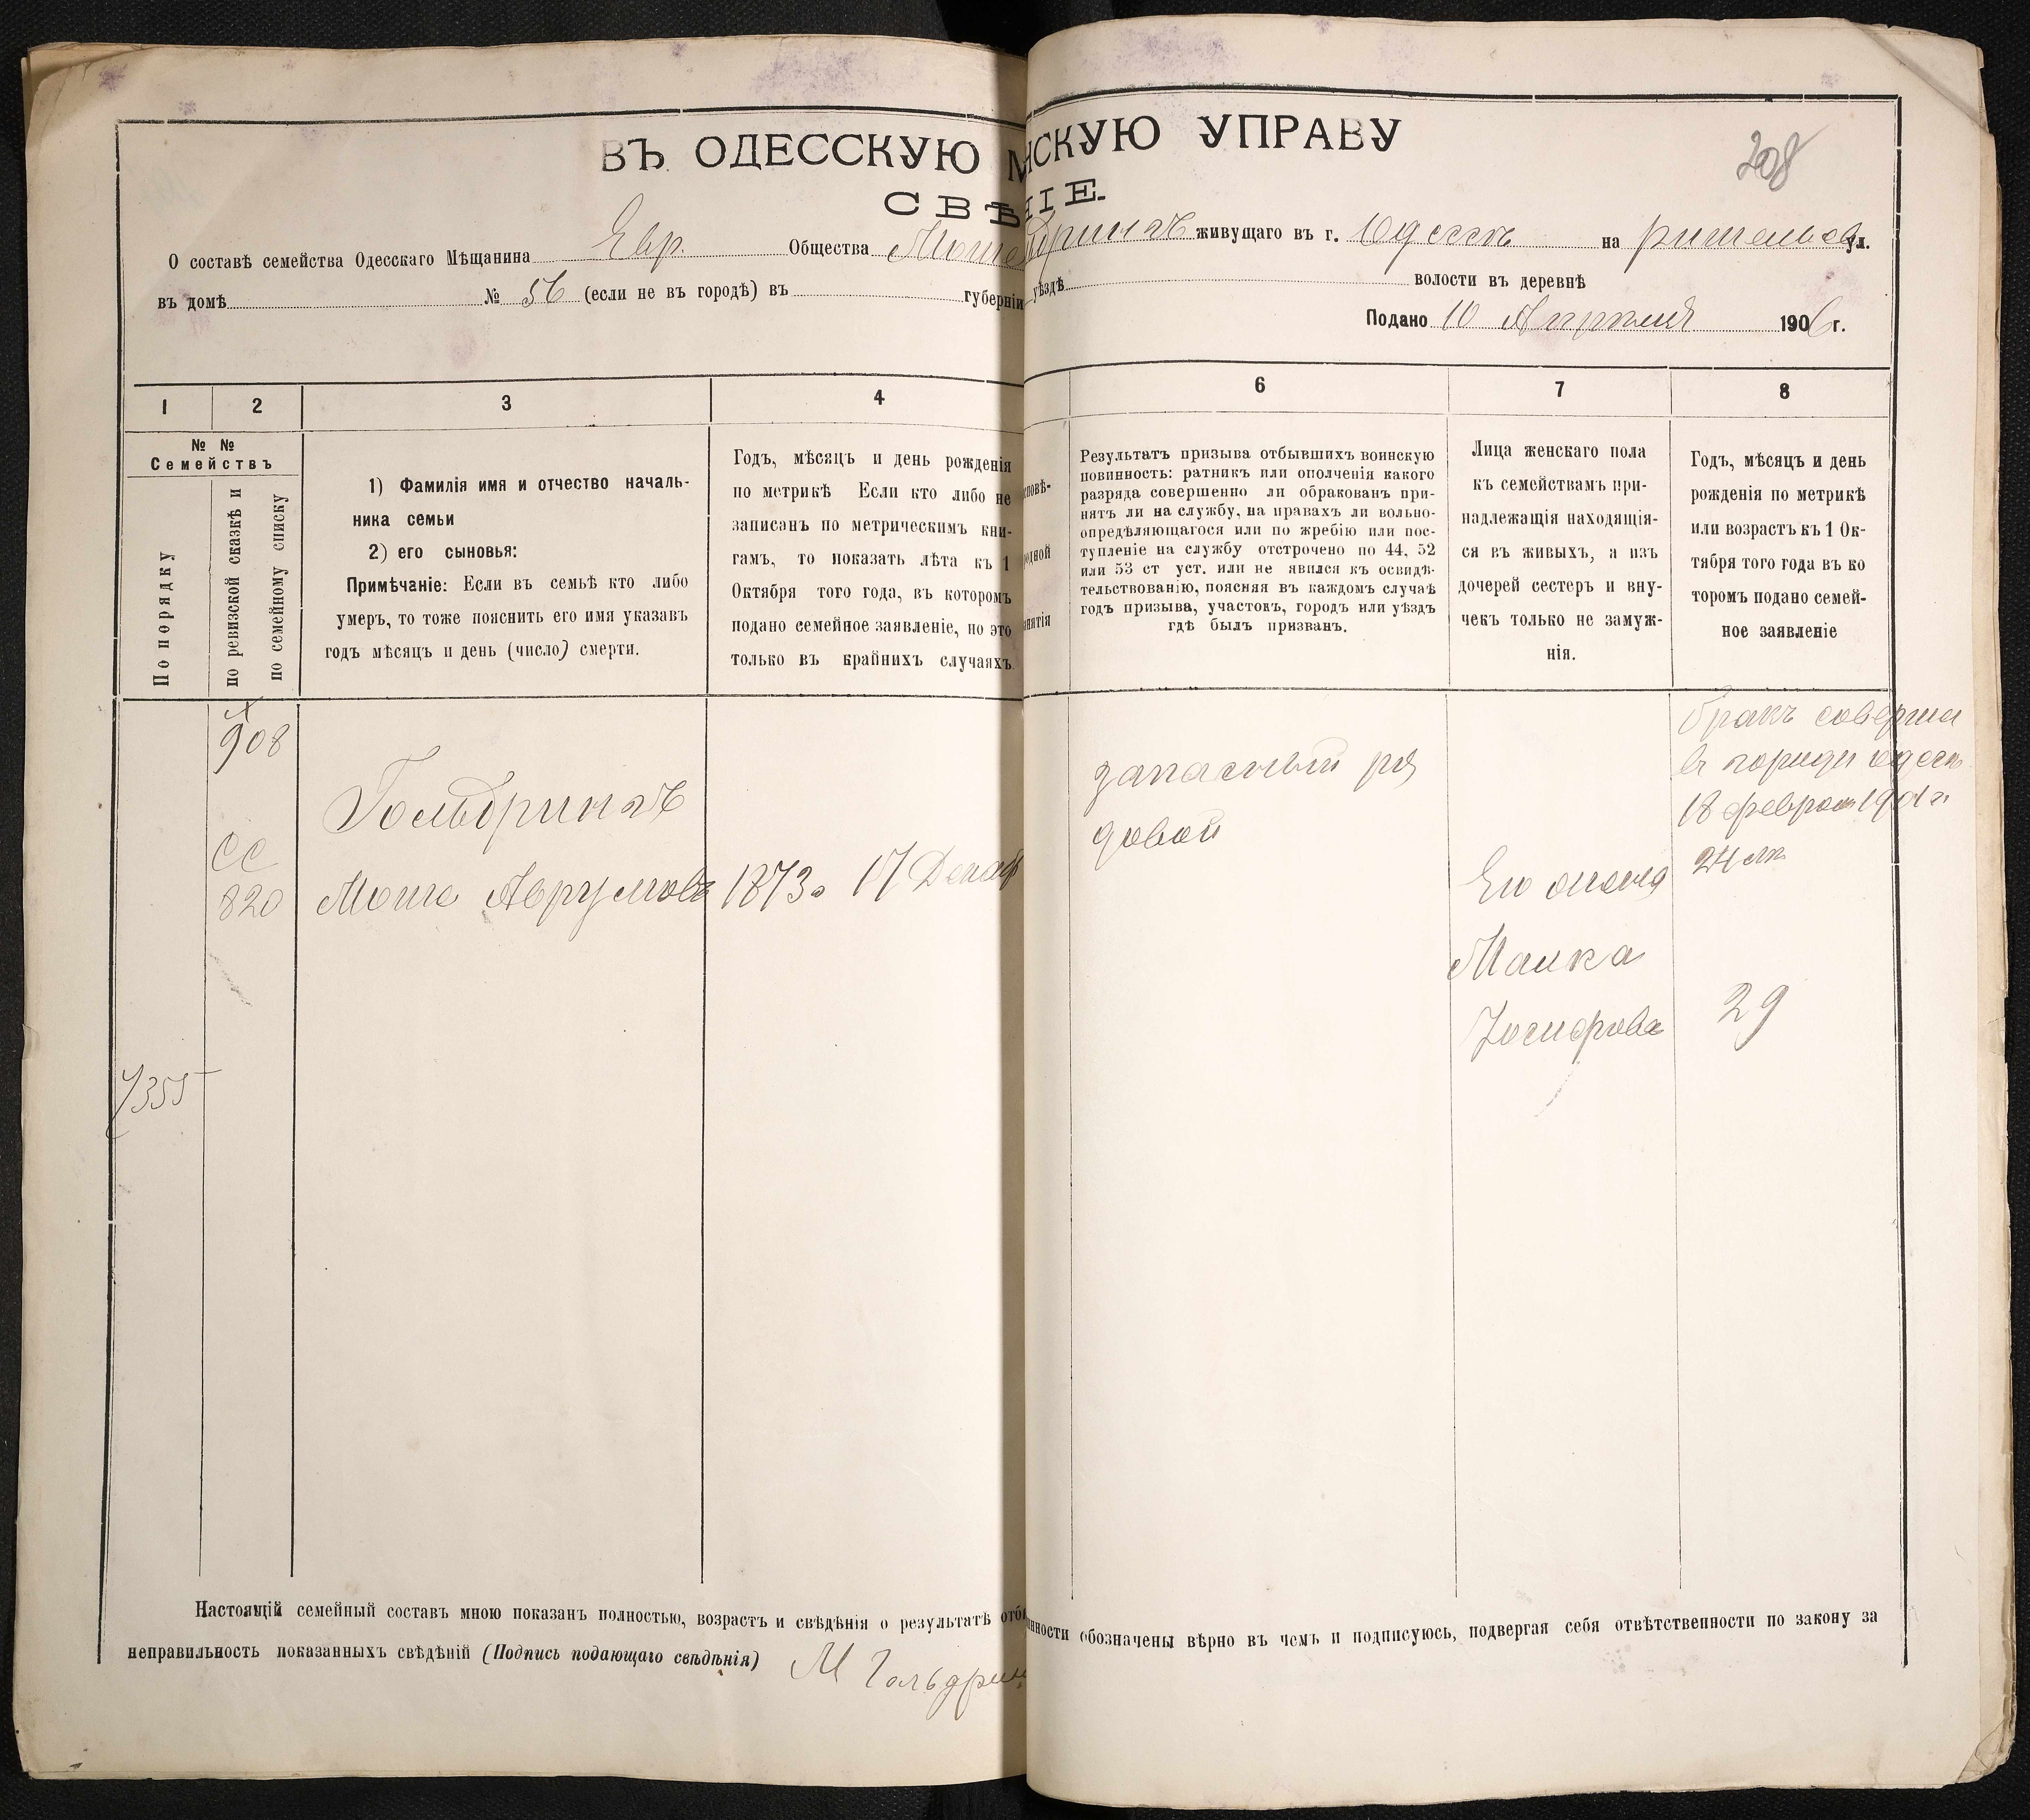 ВЪ ОДЕССКУЮ М НСКУЮ УПРАВУ
208
СВѢ НІЕ.
О составѣ семейства Одесскаго Мѣщанина Евр. Общества Мош дрингъ живущаго въ г. Одессѣ на ришельев ул.
въ домѣ № 56 (если не въ городѣ) въ губерніи уѣздѣ волости въ деревнѣ
Подано 10 Апрѣля 1906 г.
1 2 3 4 6 7 8
№ № Семействъ
По порядку
по ревизской сказкѣ и по семейному списку
1) Фамилія имя и отчество началь-
ника семьи
2) его сыновья:
Примѣчаніе: Если въ семьѣ кто либо
умеръ, то тоже пояснить его имя указавъ
годъ мѣсяцъ и день (число) смерти.
Годъ, мѣсяцъ и день рожденія
по метрикѣ Если кто либо не
записанъ по метрическимъ кни-
гамъ, то показать лѣта къ 1
Октября того года, въ которомъ
подано семейное заявленіе, но это
только въ крайнихъ случаяхъ
повѣ-
родной
нятія
Результатъ призыва отбывшихъ воинскую
повинность: ратникъ или ополченія какого
разряда совершенно ли обракованъ при-
нятъ ли на службу, на правахъ ли вольно-
опредѣляющагося или по жребію или пос-
тупленіе на службу отстрочено по 44, 52
или 53 ст уст. или не явился къ освидѣ-
тельствованію, поясняя въ каждомъ случаѣ
годъ призыва, участокъ, городъ или уѣздъ
гдѣ былъ призванъ.
Лица женскаго пола
къ семействамъ при-
надлежащія находящія-
ся въ живыхъ, а изъ
дочерей сестеръ и вну-
чекъ только не замуж-
нія.
Годъ, мѣсяцъ и день
рожденія по метрикѣ
или возрастъ къ 1 Ок-
тября того года въ ко
торомъ подано семей-
ное заявленіе
908
Гольдрингъ
СС
820
Моше Аврумовъ 1873г 17 Декаб
запасный ря
довой
бракъ соверша
в городи одесе
18 феврал 1901 г.
24 лѣ
Его жена
Малка
Іосифова
29
7355
Настоящій семейный составъ мною показанъ полностью, возрастъ и свѣдѣнія о результатѣ отбы нности обозначены вѣрно въ чемъ и подписуюсь, подвергая себя отвѣтственности по закону за
неправильность показанныхъ свѣдѣній (Подпись подающаго свѣдѣнія) М Гольдрин